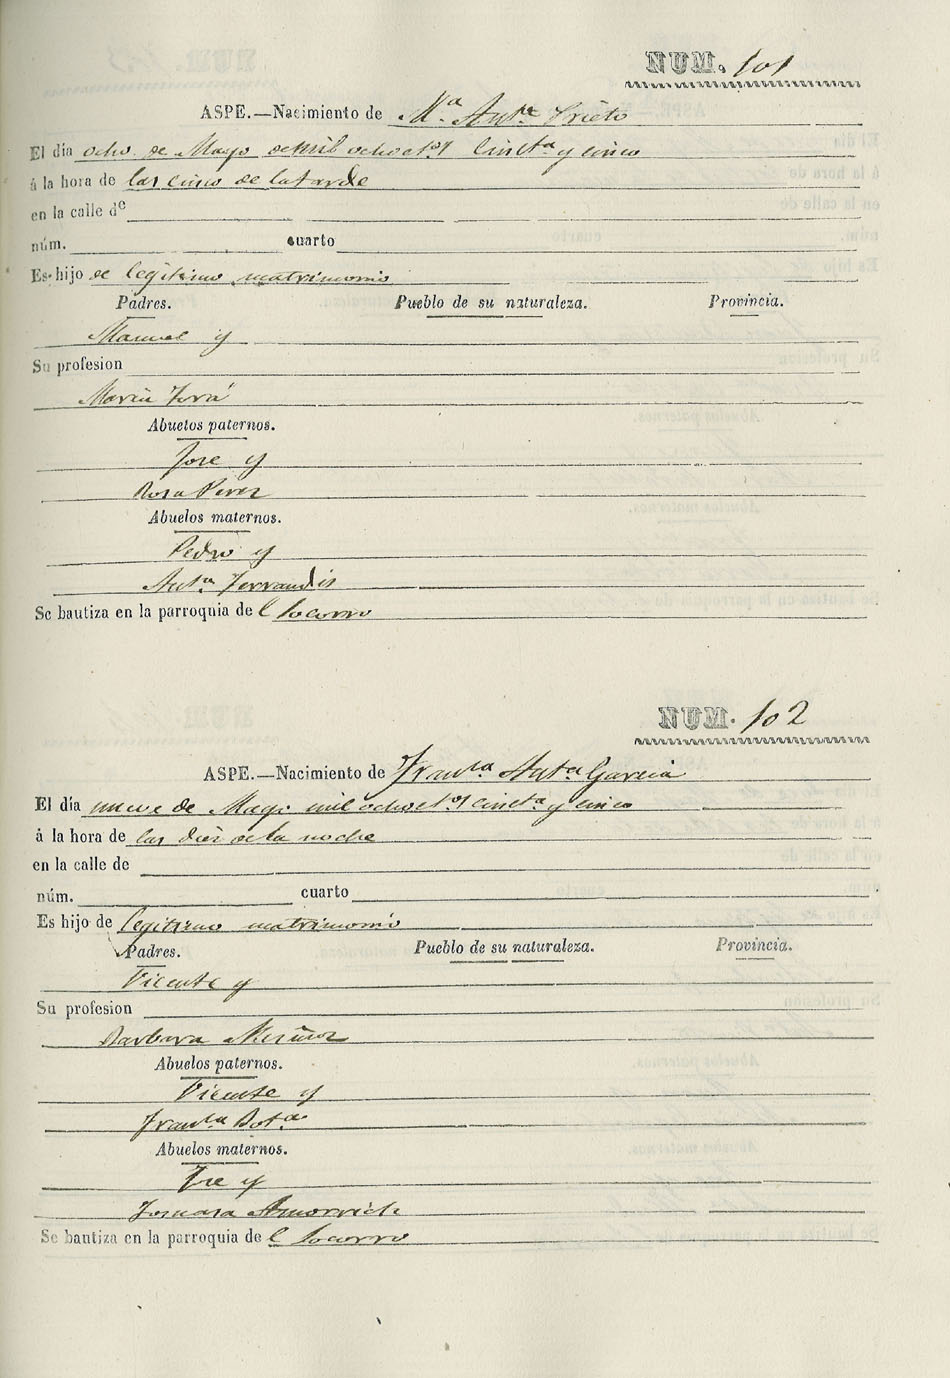 NUM. 101
ASPE.—Nacimiento de Mª. Antª Prieto
El día ocho de Mayo de mil ochoctos Cinctª y cinco
á la hora de las cinco de la tarde
en la calle de
núm. cuarto
Es hijo de legitimo matrimonio
Padres. Pueblo de su naturaleza. Provincia.
Manuel y
Su profesion
Maria
Abuelos paternos.
Jose y
Rosa Perez
Abuelos maternos.
Pedro y
Antª Ferrandis
Se bautiza en la parroquia del Socorro
NUM. 102
ASPE.—Nacimiento de Franca Antª Garcia
El día nueve de Mayo mil ochoctos cinctª y cinco
á la hora de las diez de la noche
en la calle de
núm. cuarto
Es hijo de legitimo matrimonio
Padres. Pueblo de su naturaleza. Provincia.
Vicente y
Su profesion
Barbara
Abuelos paternos.
Vicente y
Franca
Abuelos maternos.
y
Se bautiza en la parroquia del Socorro